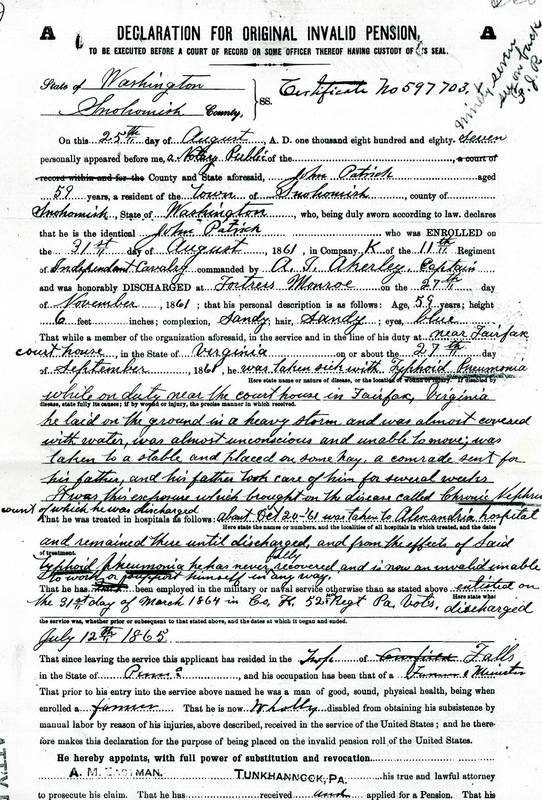 A DECLARATION FOR ORIGINAL INVALID PENSION, A
TO BE EXECUTED BEFORE A COURT OF RECORD OR SOME OFFICER THEREOF HAVING CUSTODY OF ITS SEAL.
State of Washington
Snohomish County, } ss. Certificate No 597703.
On this 25th day of August, A. D. one thousand eight hundred and eighty-seven
personally appeared before me, a Notary Public of the a court of
record within and for the County and State aforesaid, John Patrick aged
59 years, a resident of the Town of Snohomish, county of
Snohomish, State of Washington, who, being duly sworn according to law, declares
that he is the identical John Patrick who was ENROLLED on
the 31st day of August, 1861, in Company K of the 11th Regiment
of Independant Cavalry commanded by A. J. Akerley, Captain
and was honorably DISCHARGED at Fortress Monroe on the 27th day
of November, 1861; that his personal description is as follows: Age, 59 years; height
6 feet inches; complexion, Sandy; hair, Sandy; eyes, blue
That while a member of the organization aforesaid, in the service and in the line of his duty at near Fairfax
court house, in the State of Virginia on or about the 27th day
of September 1861, he was taken sick with Typhoid Pneumonia
Here state name or nature of disease, or the location of wound or injury. If disabled by
while on duty near the court house in Fairfax, Virginia
disease, state fully its causes; if by wound or injury, the precise manner in which received.
he laid on the ground in a heavy storm and was almost covered
with water, was almost unconscious and unable to move; was
taken to a stable and placed on some hay, a comrade sent for
his father, and his father took care of him for several weeks
It was this exposure which brought on the disease called Chronic
count of which he was discharged
That he was treated in hospitals as follows: about Oct 20-'61 was taken to Alexandria hospital
Here state the names or numbers, and the localities of all hospitals in which treated, and the dates
and remained there until discharged, and from the effects of said
of treatment.
typhoid pneumonia he has never fully recovered and is now an invalid unable
to work or support himself in any way.
That he has been employed in the military or naval service otherwise than as stated above enlisted on
Here state what
the 31st day of March 1864 in Co, K, 52nd Regt Pa, Vols, discharged
the service was, whether prior or subsequent to that stated above, and the dates at which it began and ended.
July 12th 1865
That since leaving the service this applicant has resided in the of Falls
in the State of Penna, and his occupation has been that of a Farmer & Minister
That prior to his entry into the service above named he was a man of good, sound, physical health, being when
enrolled a farmer That he is now Wholly disabled from obtaining his subsistence by
manual labor by reason of his injuries, above described, received in the service of the United States; and he there-
fore makes this declaration for the purpose of being placed on the invalid pension roll of the United States.
He hereby appoints, with full power of substitution and revocation
A. M. EASTMAN, TUNKHANNOCK, PA. his true and lawful attorney
to prosecute his claim. That he has received and applied for a Pension. That his